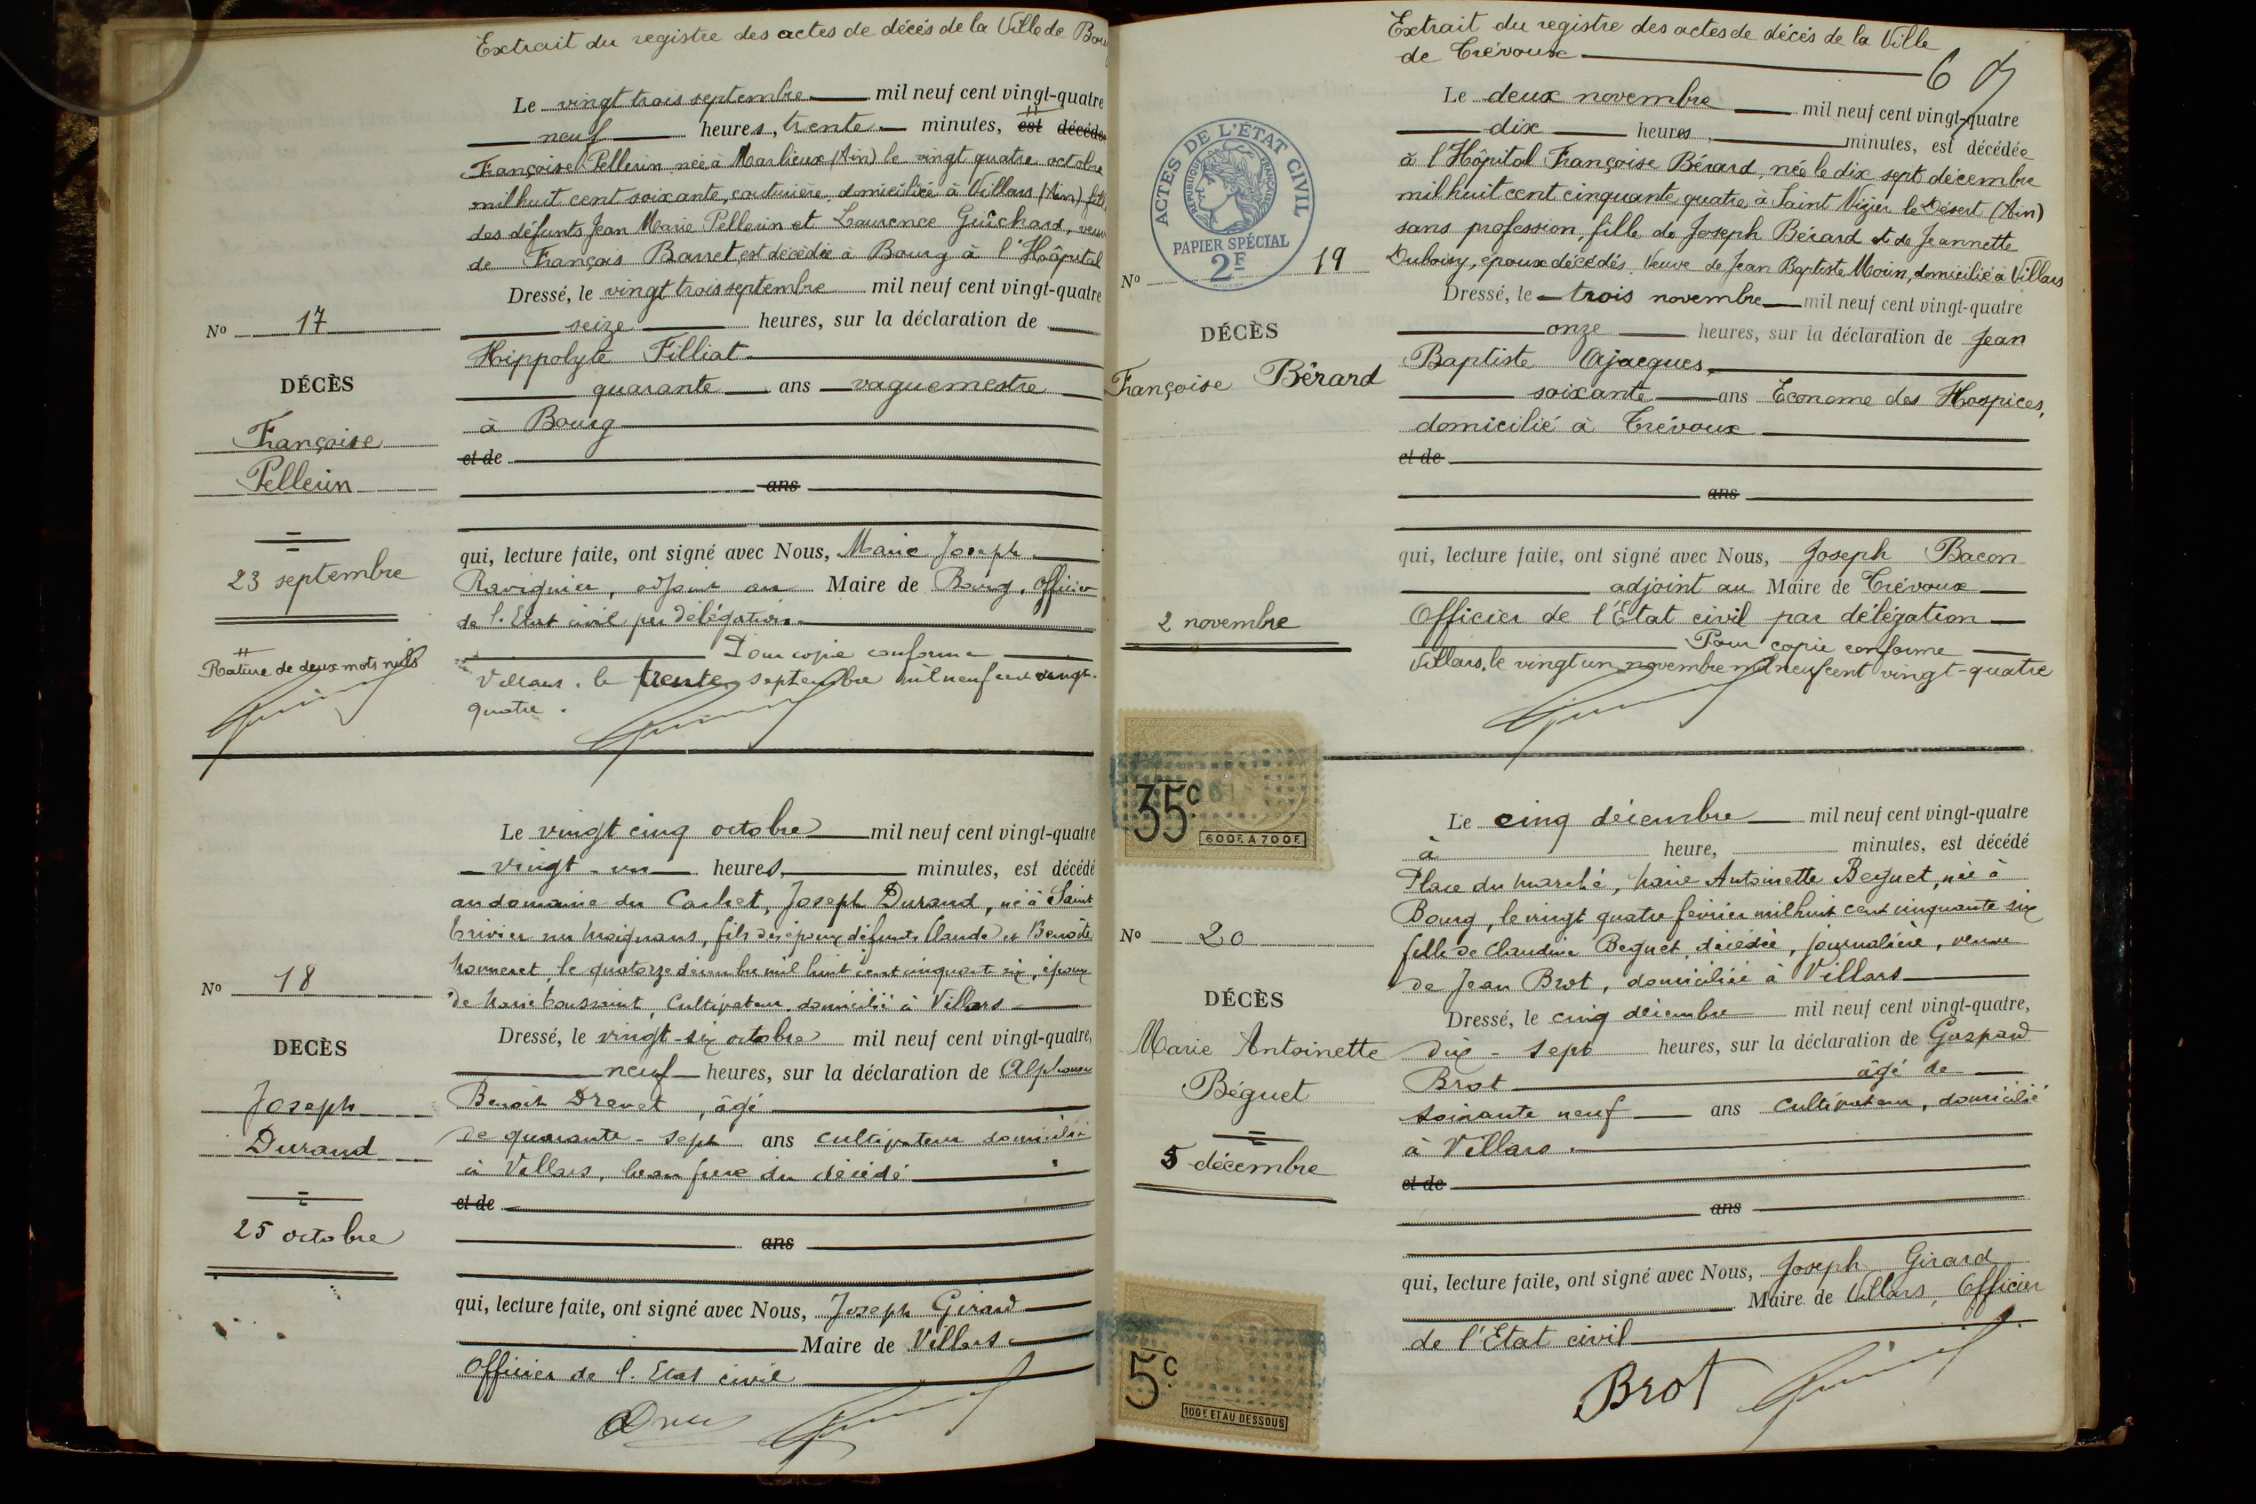 Extrait du registre des actes de décés de la Ville de
Le vingt trois septembre mil neuf cent vingt-quatre
neuf heures, trente minutes, est décédé
Françoise Pellerin née à Marlieux (Ain) le vingt quatre octobre
mil huit cent soixante, couturière, domiciliée à Villars (Ain) fille
des défunts Jean Marie Pellerin et Laurence Guichard, veuve
de François Barret, est décédée à Bourg à l'Hôpital
Dressé, le vingt trois septembre mil neuf cent vingt-quatre
seize heures, sur la déclaration de
Hippolyte Filliat
quarante ans vaguemestre
à Bourg
et de
ans
qui, lecture faite, ont signé avec Nous, Marie Joseph
adjoint au Maire de Bourg, Officier
de l'Etat civil par délégation
Pour copie conforme
Villars, le trente septembre mil neuf cent vingt-
quatre.
No 17
DÉCÈS
Françoise
Pellerin
23 septembre
Rature de deux mots nuls
Le vingt cinq octobre mil neuf cent vingt-quatre
vingt-un heures, minutes, est décédé
au domaine du Cachet, Joseph Durand, né à Saint
Trivier sur Moignans, fils des époux défunts Claude et Benoîte
le quatorze décembre mil huit cent cinquante six, époux
de Marie Toussaint, Cultivateur, domicilié à Villars
Dressé, le vingt-six octobre mil neuf cent vingt-quatre,
neuf heures, sur la déclaration de Alphonse
Benoit Drevet, âgé
de quarante-sept ans cultivateur domicilié
à Villars, beau frère du décédé
et de
ans
qui, lecture faite, ont signé avec Nous, Joseph Girard
Maire de Villars
Officier de l'Etat civil
No 18
DECÈS
Joseph
Durand
25 octobre
Extrait du registre des actes de décés de la Ville
de Trévoux
6
Le deux novembre mil neuf cent vingt-quatre
dix heures minutes, est décédée
à l'Hôpital Françoise Bérard, née le dix sept décembre
mil huit cent cinquante quatre à Saint Nizier le Désert (Ain)
sans profession, fille de Joseph Bérard et de Jeannette
Duboisy, époux décédés. Veuve de Jean Baptiste Moin, domiciliée à Villars
Dressé, le trois novembre mil neuf cent vingt-quatre
onze heures, sur la déclaration de Jean
Baptiste Ajacques,
soixante ans Econome des Hospices,
domicilié à Trévoux
et de
ans
qui, lecture faite, ont signé avec Nous, Joseph Bacon
adjoint au Maire de Trévoux
Officier de l'Etat civil par délégation
Pour copie conforme
Villars, le vingt un novembre mil neuf cent vingt-quatre
ACTES DE L'ÉTAT CIVIL
RÉPUBLIQUE FRANÇAISE
PAPIER SPÉCIAL
2F
No 19
DÉCÈS
Françoise Bérard
2 novembre
35c
600F. A 700F.
Le cinq décembre mil neuf cent vingt-quatre
à heure, minutes, est décédé
Place du Marché, Marie Antoinette Beguet, née à
Bourg, le vingt quatre février mil huit cent cinquante six
fille de Claudine Beguet, décédée, journalière, veuve
de Jean Brot, domiciliée à Villars
Dressé, le cinq décembre mil neuf cent vingt-quatre,
dix-sept heures, sur la déclaration de Gaspard
Brot âgé de
soixante neuf ans cultivateur, domicilié
à Villars.
et de
ans
qui, lecture faite, ont signé avec Nous, Joseph Girard
Maire de Villars, Officier
de l'Etat civil
Brot
No 20
DÉCÈS
Marie Antoinette
Béguet
5 décembre
5c
100F. ET AU DESSOUS